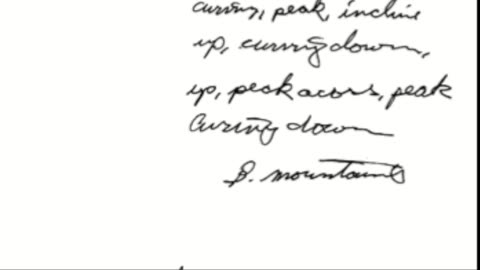 curving, peak, incline
up, curving down,
up, peak across, peak
Curving down
B. mountains